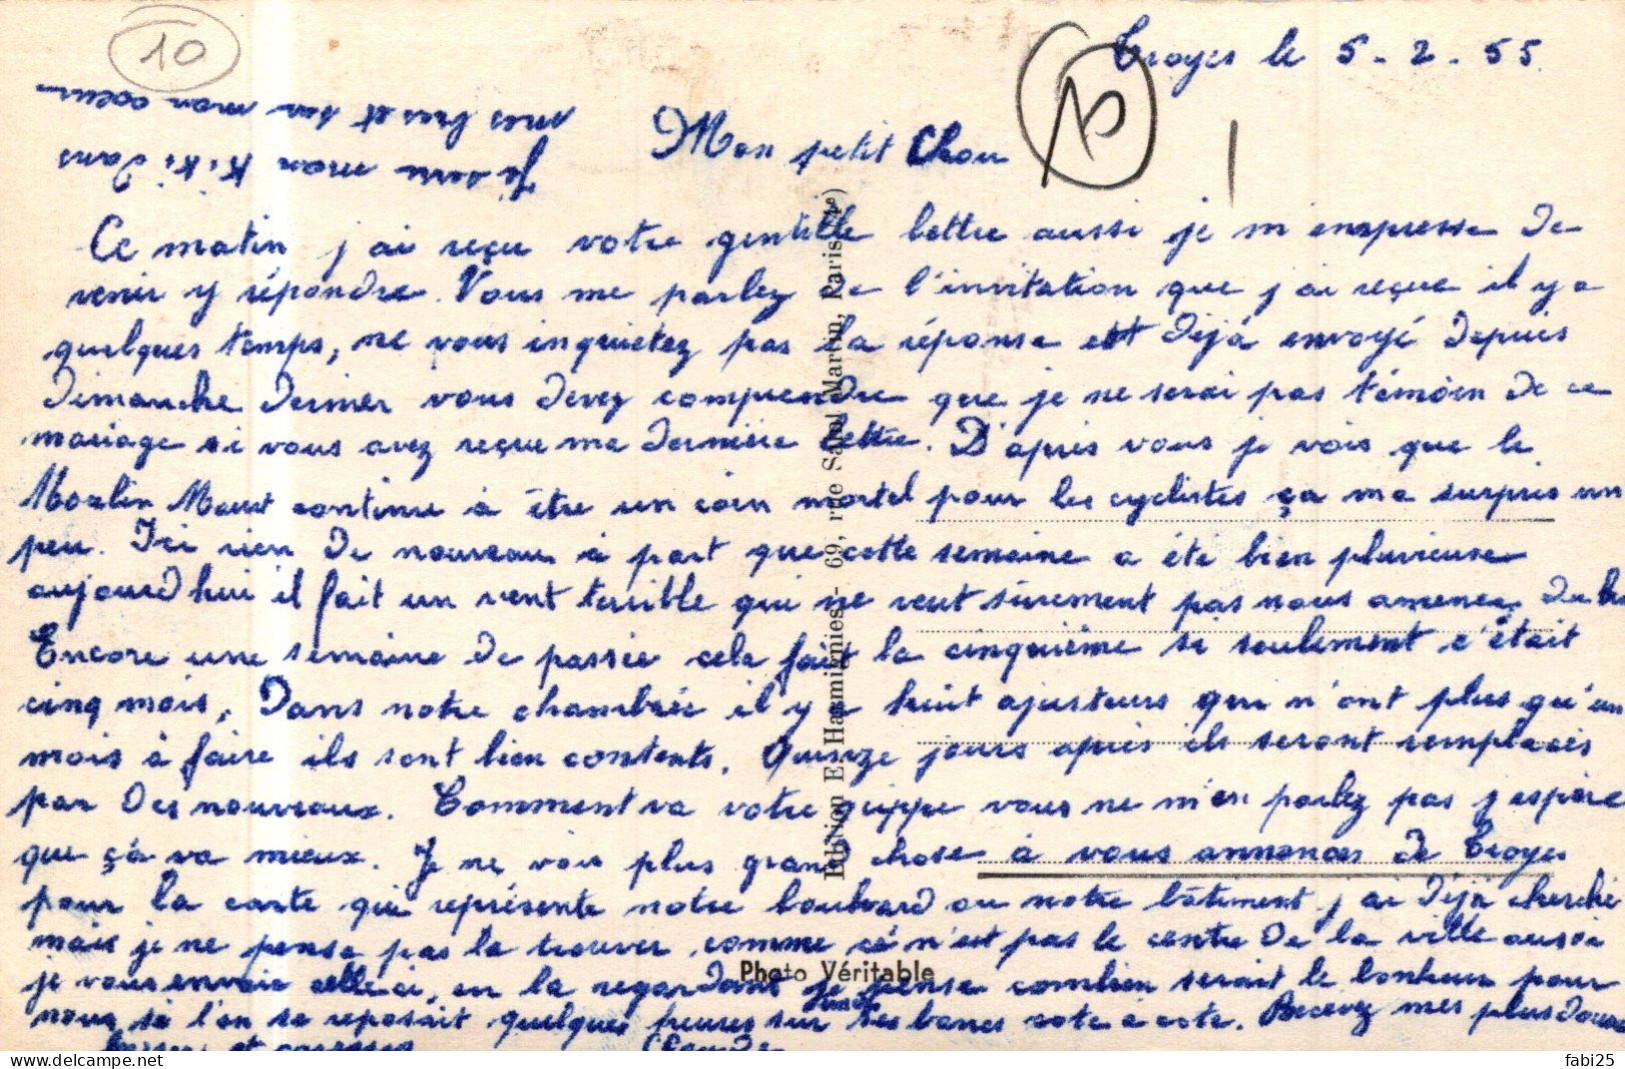 10
Troyes le 5-2-55
Mon petit Chou
Je serre mon Kiki dans
mes bras et sur mon coeur
Ce matin j ai reçu votre gentille lettre aussi je m empresse de
venir y répondre. Vous me parlez de l'invitation que j ai reçue il y a
quelques temps, ne vous inquietez pas la réponse est déjà envoyé depuis
Dimanche dernier vous devez comprendre que je ne serai pas témoin de ce
mariage si vous avez reçue ma dernière lettre. D'après vous je vois que le
Moulin continue à être un coin mortel pour les cyclistes ça ma surpris un
peu. Ici rien de nouveau à part que cette semaine a éte bien pluvieuse
aujourd hui il fait un vent terrible qui ne veut surement pas nous amener du
Encore une semaine de passée cela fait la cinquième si seulement c'était
cinq mois. Dans notre chambrée il y a huit ajusteurs qui n'ont plus qu'un
mois à faire ils sont bien contents. Quinze jours après ils seront remplacés
par des nouveaux. Comment va votre grippe vous ne m'en parlez pas j espère
que çà va mieux. Je ne vois plus grand chose à vous annoncer de Troyes
pour la carte qui représente notre boulvard ou notre bâtiment j ai déjà cherché
mais je ne pense pas la trouver comme ce n'est pas le centre de la ville aussi
je vous envoie celle ci, en la regardant je pense combien serait le bonheur pour
nous si l'on se reposait quelques heures sur ses bancs cote à cote. Recevez mes plus doux
baisers et caresses Claude
Edition E. Hasmignies - 69, rue Saint Martin, Paris-4e)
Photo Véritable
fabi25